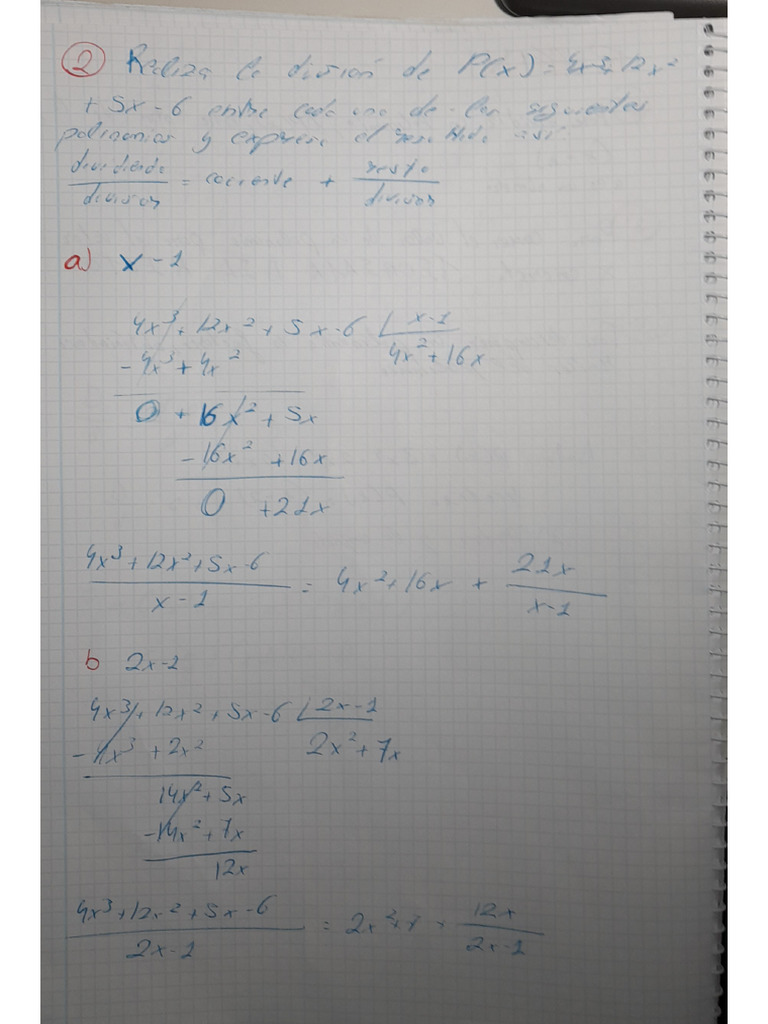 2 Realiza la división de P(x) = 4x³+12x²
+ 5x - 6 entre cada uno de los siguientes
polinomios y expresa el resultado así
dividiendo/divisor = cociente + resto/divisor
a) x - 1
4x³ + 12x² + 5x - 6 | x - 1
-4x³ + 4x² 4x² + 16x
0 + 16x² + 5x
-16x² + 16x
0 + 21x
4x³ + 12x² + 5x - 6 / x - 1 = 4x² + 16x + 21x / x - 1
b 2x - 1
4x³ + 12x² + 5x - 6 | 2x - 1
-4x³ + 2x² 2x² + 7x
14x² + 5x
-14x² + 7x
12x
4x³ + 12x² + 5x - 6 / 2x - 1 = 2x² 12x / 2x - 1